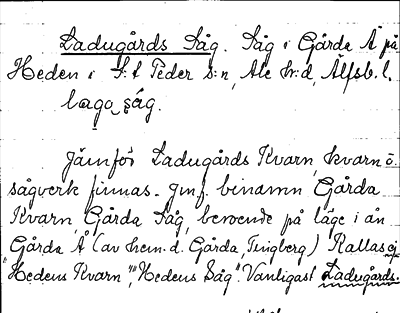 Ladugårds Såg. Såg i Gårda Å på
Heden i S:t Peder s:n, Ale hr:d, Älfsb. l.
lago ság.
Jämför Ladugårds Kvarn, kvarn o.
sågverk finnas. Jmf. binamn Gårda
Kvarn, Gårda Såg, beroende på läge i ån
Gårda Å (av hem. d. Gårda, Tingberg) Kallas ej
"Hedens Kvarn", "Hedens Såg". Vanligast Ladugårds.